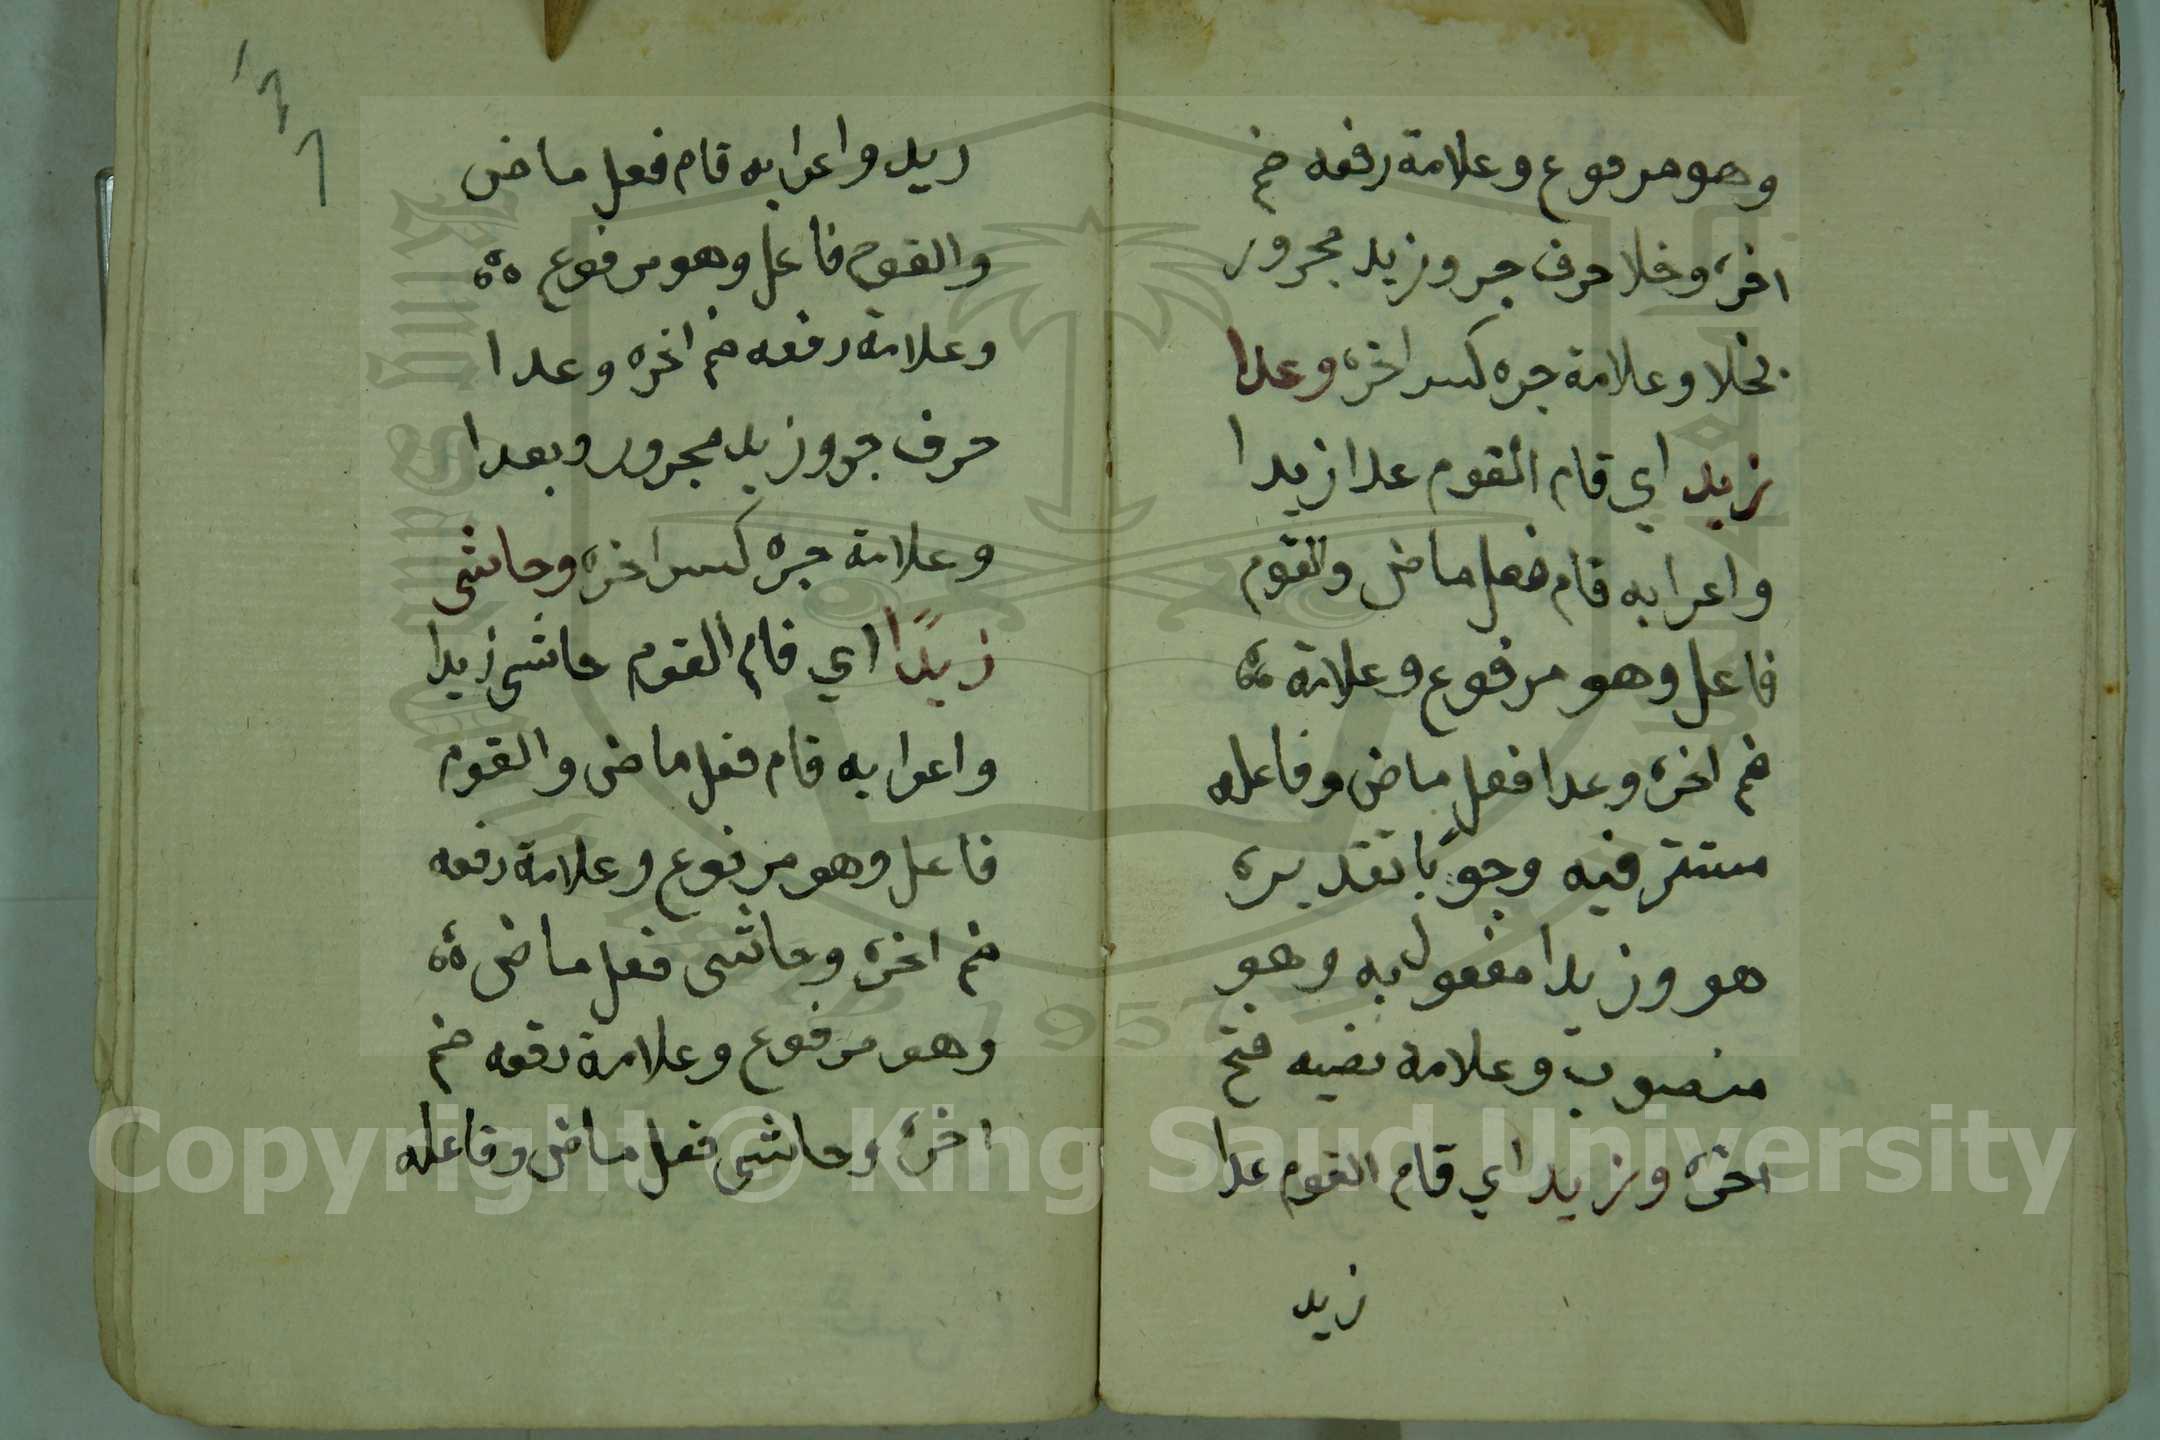 وهو مرفوع وعلامة رفعه ضم
اخره وخلا حرف جر وزيد مجرور
بخلا وعلامة جره كسر اخره وعدا
زيد اي قام القوم عدا زيدا
واعرابه قام فعل ماض والقوم
فاعل وهو مرفوع وعلامة
ضم اخره وعدا فعل ماض وفاعله
مستتر فيه وجوبًا تقديره
هو وزيدا مفعول به وهو
منصوب وعلامة نصبه فتح
اخره وزيد اي قام القوم عدا
زيد
زيد واعرابه قام فعل ماض
والقوم فاعل وهو مرفوع
وعلامة رفعه ضم اخره وعدا
حرف جر وزيد مجرور وبعدا
وعلامة جره كسر اخره وحاشى
زيدًا اي قام القوم حاشى زيدا
واعرابه قام فعل ماض والقوم
فاعل وهو مرفوع وعلامة رفعه
ضم اخره وحاشى فعل ماض
وهو مرفوع وعلامة رفعه ضم
اخره وحاشى فعل ماض وفاعله
Copyright © King Saud University
1957